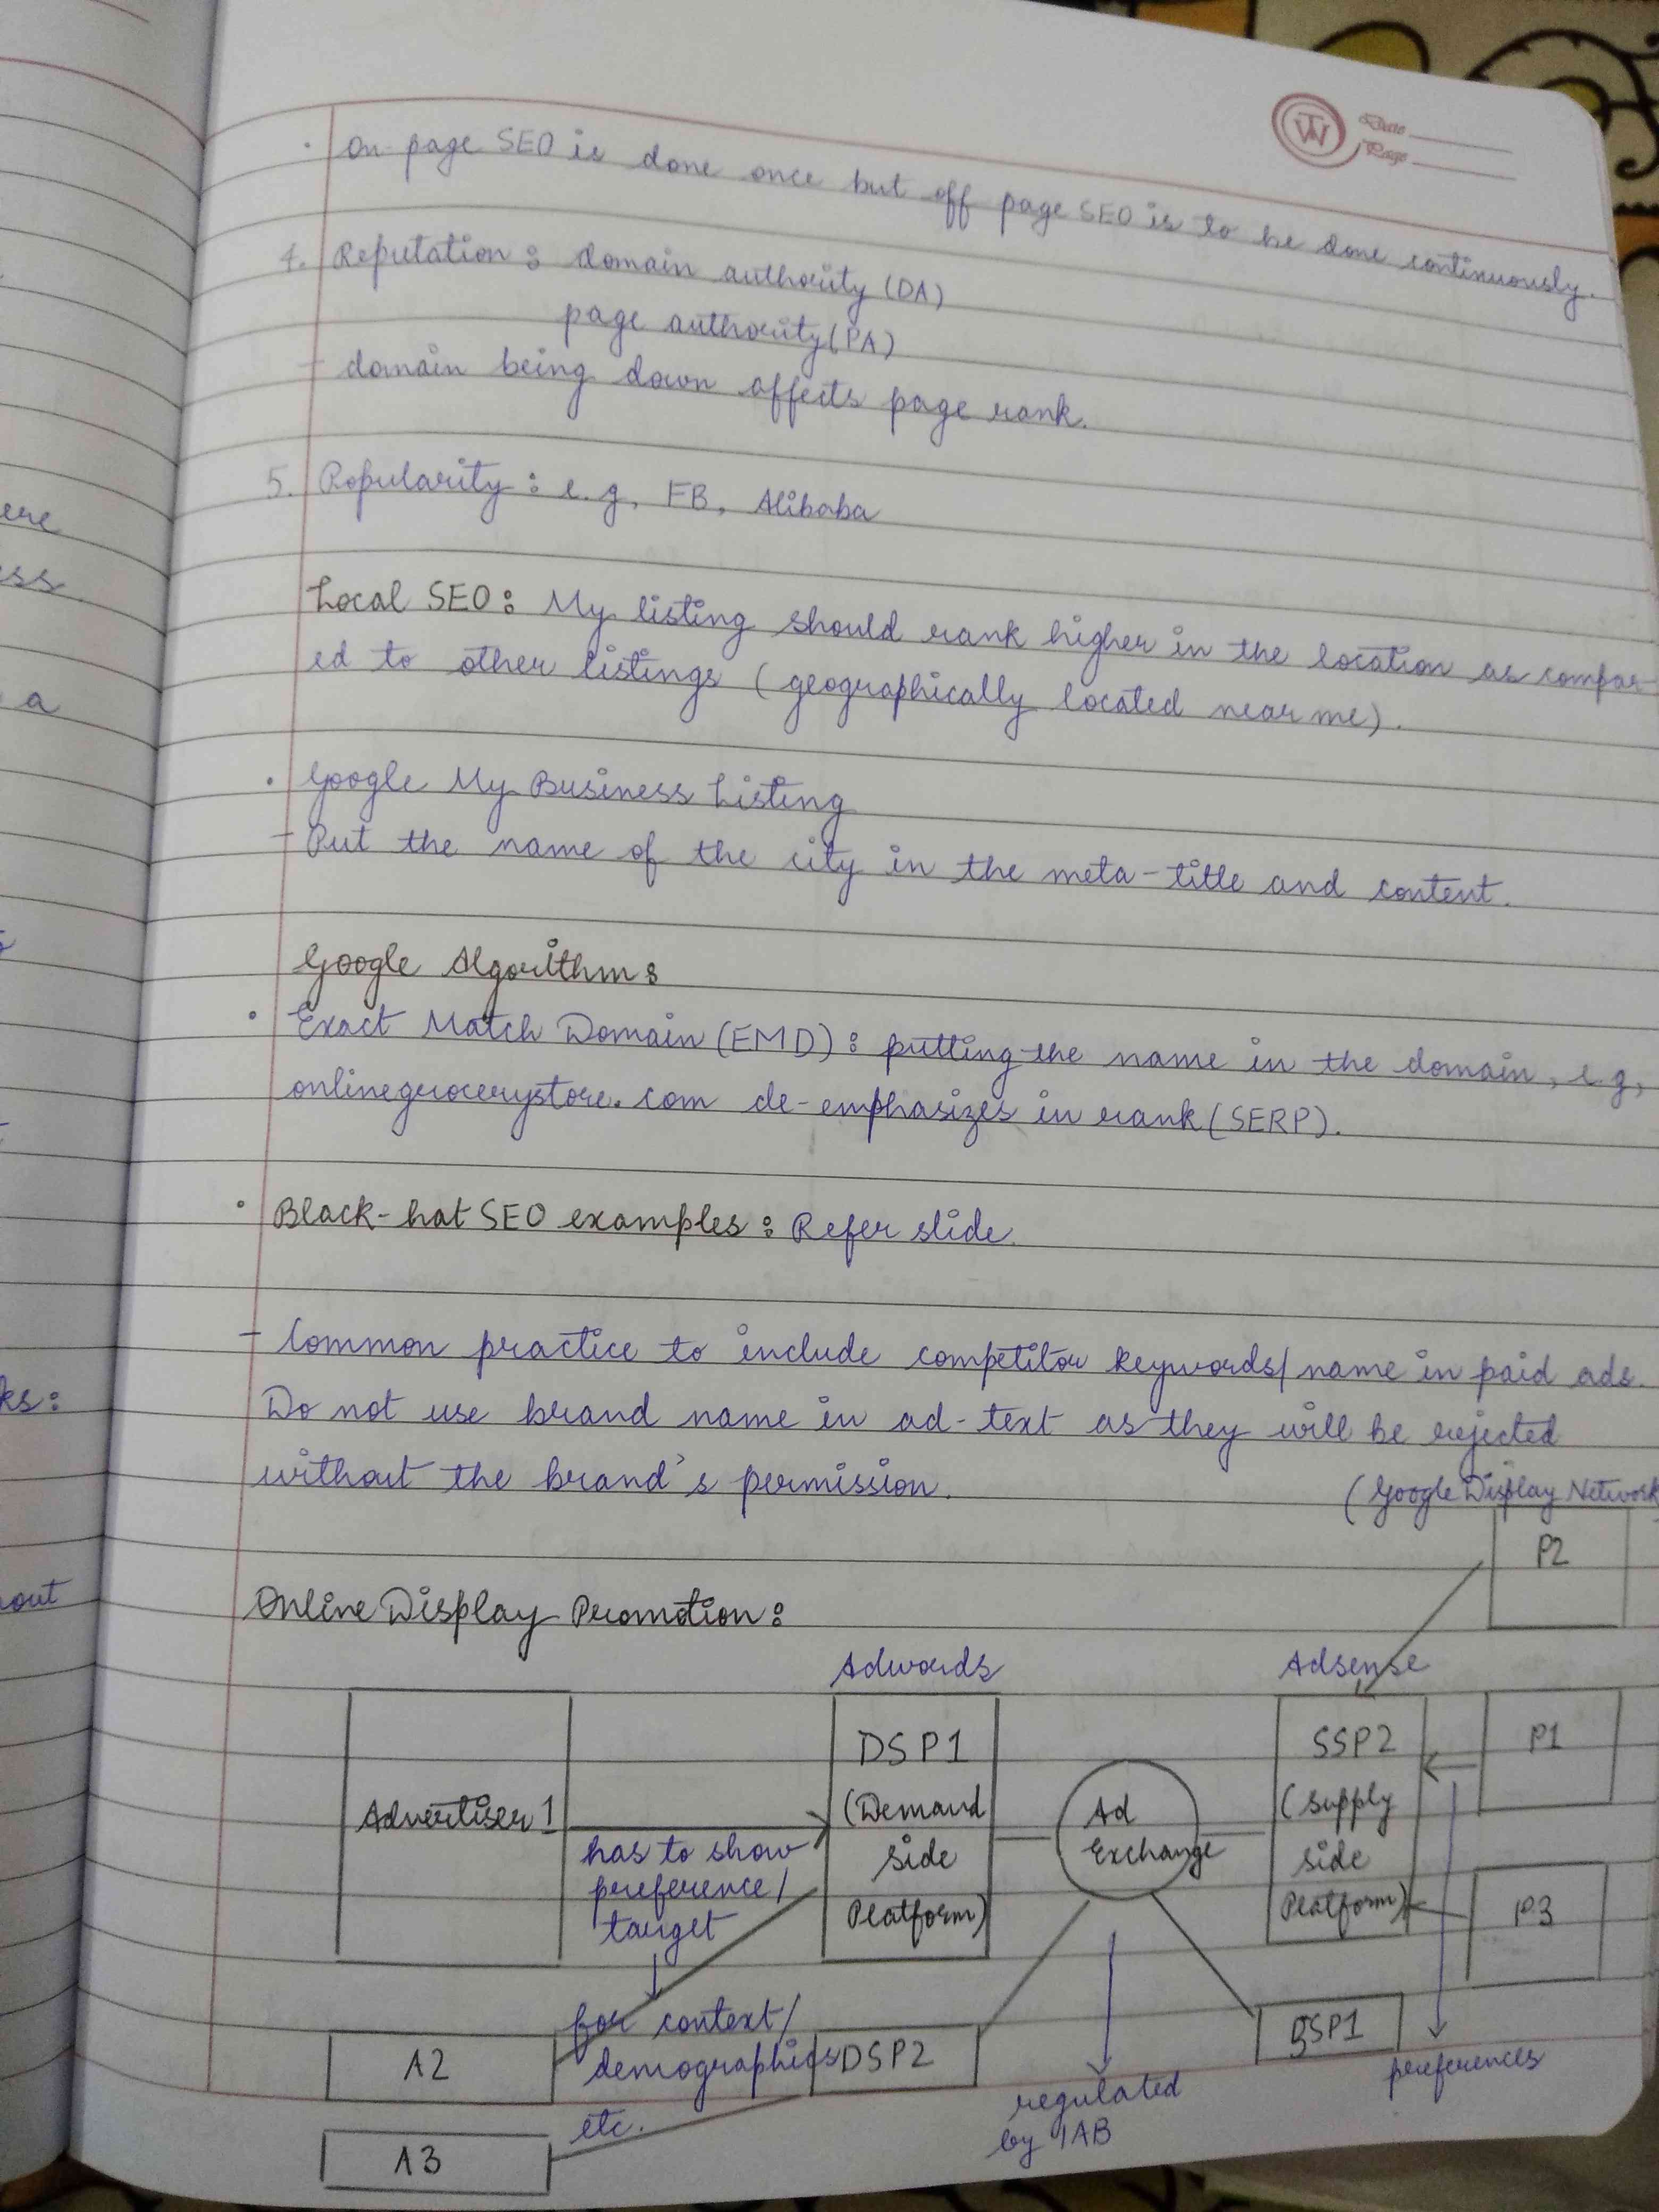 Date
Page
. On-page SEO is done once but off page SEO is to be done continuously.
4. Reputation : domain authority (DA)
page authority (PA)
- domain being down affects page rank.
5. Popularity : e.g, FB, Alibaba
Local SEO : My listing should rank higher in the location as compar-
ed to other listings (geographically located near me).
. Google My Business Listing
- Put the name of the city in the meta-title and content.
Google Algorithm :
. Exact Match Domain (EMD) : putting the name in the domain, e.g,
onlinegrocerystore.com de-emphasizes in rank (SERP).
. Black-hat SEO examples : Refer slide.
- Common practice to include competitor keywords/name in paid ads.
Do not use brand name in ad-text as they will be rejected
without the brand's permission.
(Google Display Network
P2
Online Display Promotion :
Adwords
Adsense
DSP1
(Demand
side
Platform)
SSP2
(supply
side
Platform)
P1
Advertiser 1
Ad
Exchange
has to show
preference/
target
P3
for context/
demographics
etc.
A2
DSP2
SSP1
preferences
regulated
by IAB
A3
ere
ess
a
ks:
out